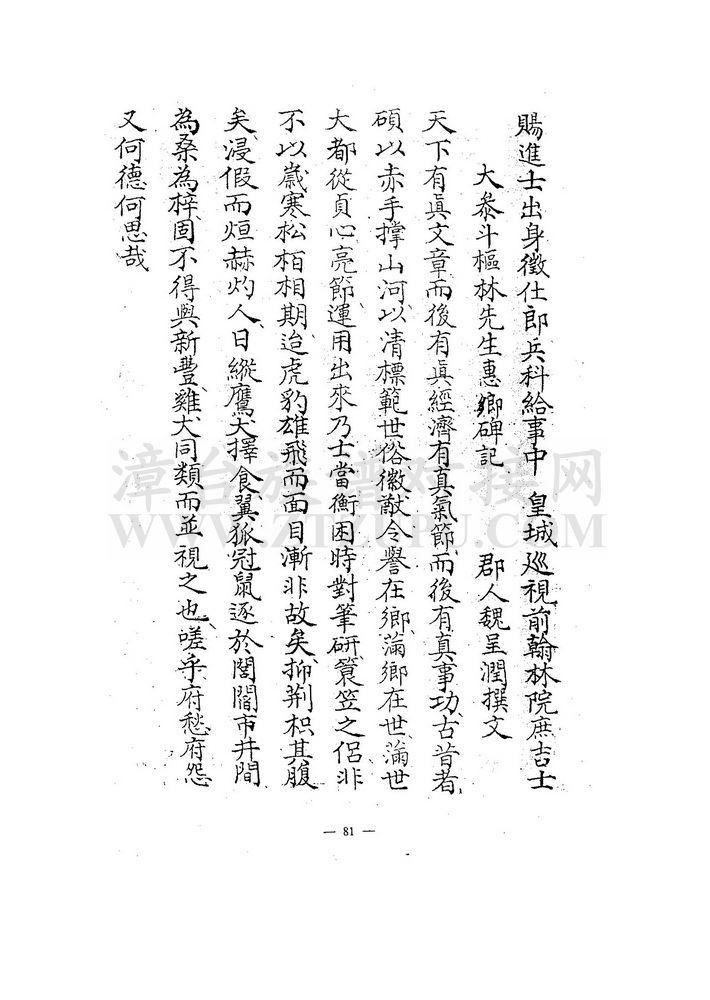 賜進士出身徵仕郎兵科給事中　皇城巡視前翰林院庶吉士
大叅斗樞林先生惠鄉碑記　郡人魏呈潤撰文
天下有眞文章而後有眞經濟有真氣節而後有真事功古昔者
碩以赤手撑山河以清標範世俗徽猷令譽在鄉滿鄉在世滿世
大都從貞心亮節運用出來乃士當衡困時對筆研簑笠之侶非
不以歲寒松栢相期迨虎豹雄飛而面目漸非故矣抑荆枳其腹
矣浸假而烜赫灼人日縱鷹犬擇食翼狐冠鼠逐於閭閻市井間
為桑為梓固不得與新豐雞犬同類而並視之也嗟乎府愁府怨
又何德何思哉
漳台族谱对接网
WWW.ZTZUPU.COM
— 81 —